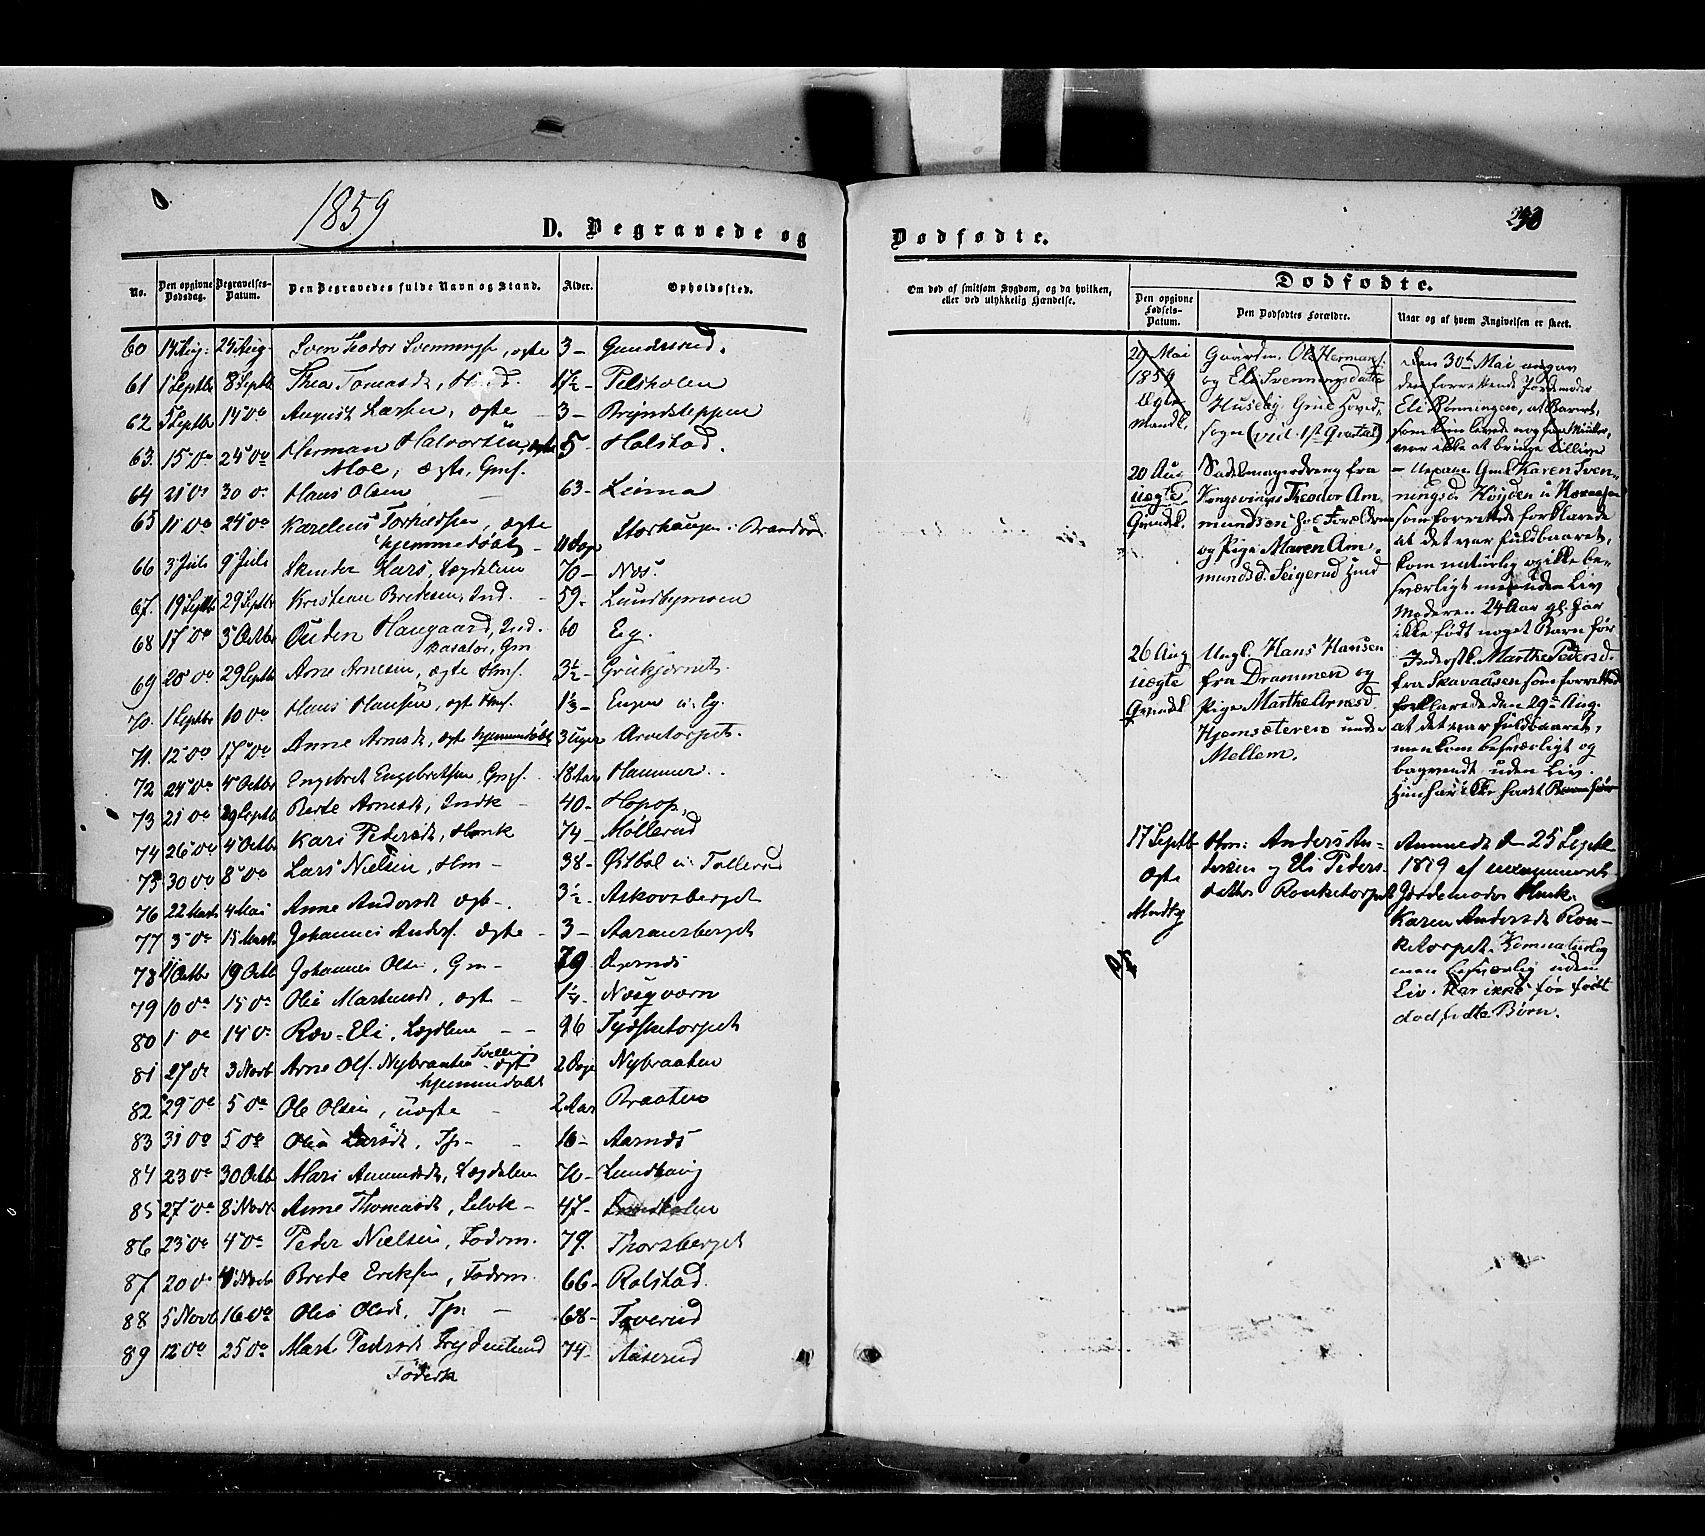 1859
D. Begravede og
No.
Den opgivne Dødsdag.
Begravelses-Datum.
Den Begravedes fulde Navn og Stand.
Alder.
Opholdssted.
60 14 Aug: 24 Aug. Sven Teodor Svenningss, ægte 3 - Gundersrud.
61 1 Septbr 8 Septb Thea Tomasdt, 1½ - Pelsholen
62 5 Septbr 14 do August Larsen, ægte - 3 - Bryndsleppen
63. 15 do 25 do Herman Halvorsen 5 Holstad.
Moe, ægte, Gmf.
64 21 do 30 do Hans Olsen 63 - Leirna
65 11 do 25 do Karelius Torkelssen, ægte Storhaugen i Brandvol
hjemmedøbt - 4 Dage
66 3 Juli 9 Juli Skinder Lars, Lægdslem 70 - Næs.
67. 19 Septb 29 Septb Kristian Bredesen, Ind. - 59 - Lundbymoen
68 17 do 3 Octbr Ouden Haugaard, Ind. 60 Eg.
Kasator, Gm
69 20 do 29 Septb Arne Arnesen, ægte Hmf. 3½ - Grikkjernet.
70. 1 Septbr 10 do Hans Hansen, ægt Hmf. 1⅓ - Engen u. Eg.
71. 12 do 17 do Anne Arnesdt, ægte hjemmedøbt 3 Uger Arnetorpet.
72 24 do 4 Octbr Engebret Engebretsen, Gmf. 18 Aar Hammer.
73 21 do 29 Septb Berte Arnesdt, Indk - 40 - Hopop,
74 26 do 4 Octbr Kari Pedersdt, Hmk 74 - Møllerud
75 30 do 8 do Lars Nielsen, Hm - 38 - Østbøl u. Tollerud
76 22 Marts 4 Mai Anne Andersdt ægte. 3½ - Askovsberget
77 3 do 15 Marts Johannes Andersf. ægte - 3 - Aaransberget
78 11 Octbr 19 Octb Johannes Olsen, Gm - 79 Opsnæs
79 10 do 15 do Olea Martinsdt, ægte - 1¼ - Næsqværn
80 1 do 14 do Ræv-Eli, Lægdslem - - 96 Tydsketorpet
81 27 do 3 Novb Arne Ols. Nybraaten Tvilling ægte 2 Dage Nybraaten
hjemmedøbt
82 29 do 5 do Ole Olsen, uægte - 2 Aar Braaten
83 31 do 5 do Olea Larsdt, Tp - - 16 - Aarnæs
84 23 do 30 Octb Mari Amundsdt, Lægdslem 70 - Lundhaug
85 27 do 8 Novb Anne Thomasdt, Selvk - 47 -
86 23 do 4 do Peder Nielsen, Føderm. 79. Thorsberget
87 20 do 4 Novb Brede Eriksen, Føderm. 66 - Rolstad.
88 5 Novb 16 do Olea Olsdt, Tp. - 68 - Toverud
89 12 do 25 do Mari Pedersdt Frydenlund 74 - Aaserud
Føderk
Dødfødte.
Om død af smitsom Sygdom, og da hvilken, eller ved ulykkelig Hændelse.
Dødfødte.
Den opgivne Fødsels-Datum.
Den Dødfødtes Forældre.
Naar og af hvem Angivelsen er skeet.
29 Mai
1859
Ægte
Mandk.
Gaardm. Ole Hermans.
og Eli Svenningsdatter
Huseby Grue Hoved,
sogn (vid. 1st Qvartal)
Den 30te Mai angav
den forrettende Jordemoder
Eli Rønningen, at Barnet,
som kun levede nogle faa Minutter,
var ikke at bringe tillive
20 Aug
uægte
Qvindek.
Sadelmagerdreng fra
Kongsvinger Theodor Am
mundsen
og Pige Maren Am,
mundsd. Seigerud Grue
- Uexam. Gmk Karen Sven
ningsd. Høyden u. Kornaasen
som forrettede forklarede
at det var fuldbaaret,
kom naturlig og ikke be-
sværligt men uden Liv
Moderen 24 Aar gl. har
ikke født noget Barn før
26 Aug
uægte
Qvindek
Ungk. Hans Hansen
fra Drammen og
Pige Marthe Arnesd.
Hjemsæteren under
Mellem.
Inderstk. Marthe Pedersd.
fra Skavaasen som forrettede
forklarede den 29de Aug.
at det var fuldbaaret,
men kom besværligt og
bagvendt uden Liv.
Hun har ikke havt Barn før
17 Septb
ægte
Mandkj
Hm: Anders An-
dersen og Eli Peders-
datter Ronketorpet
Anmeldt d 25 Septb
1859 af uexamineret
Jordemoder Hmk.
Karen Andersdt Ron-
ketorpet. Kom naturlig
men besværlig uden
Liv. Har ikke før født
dødfødte Børn.